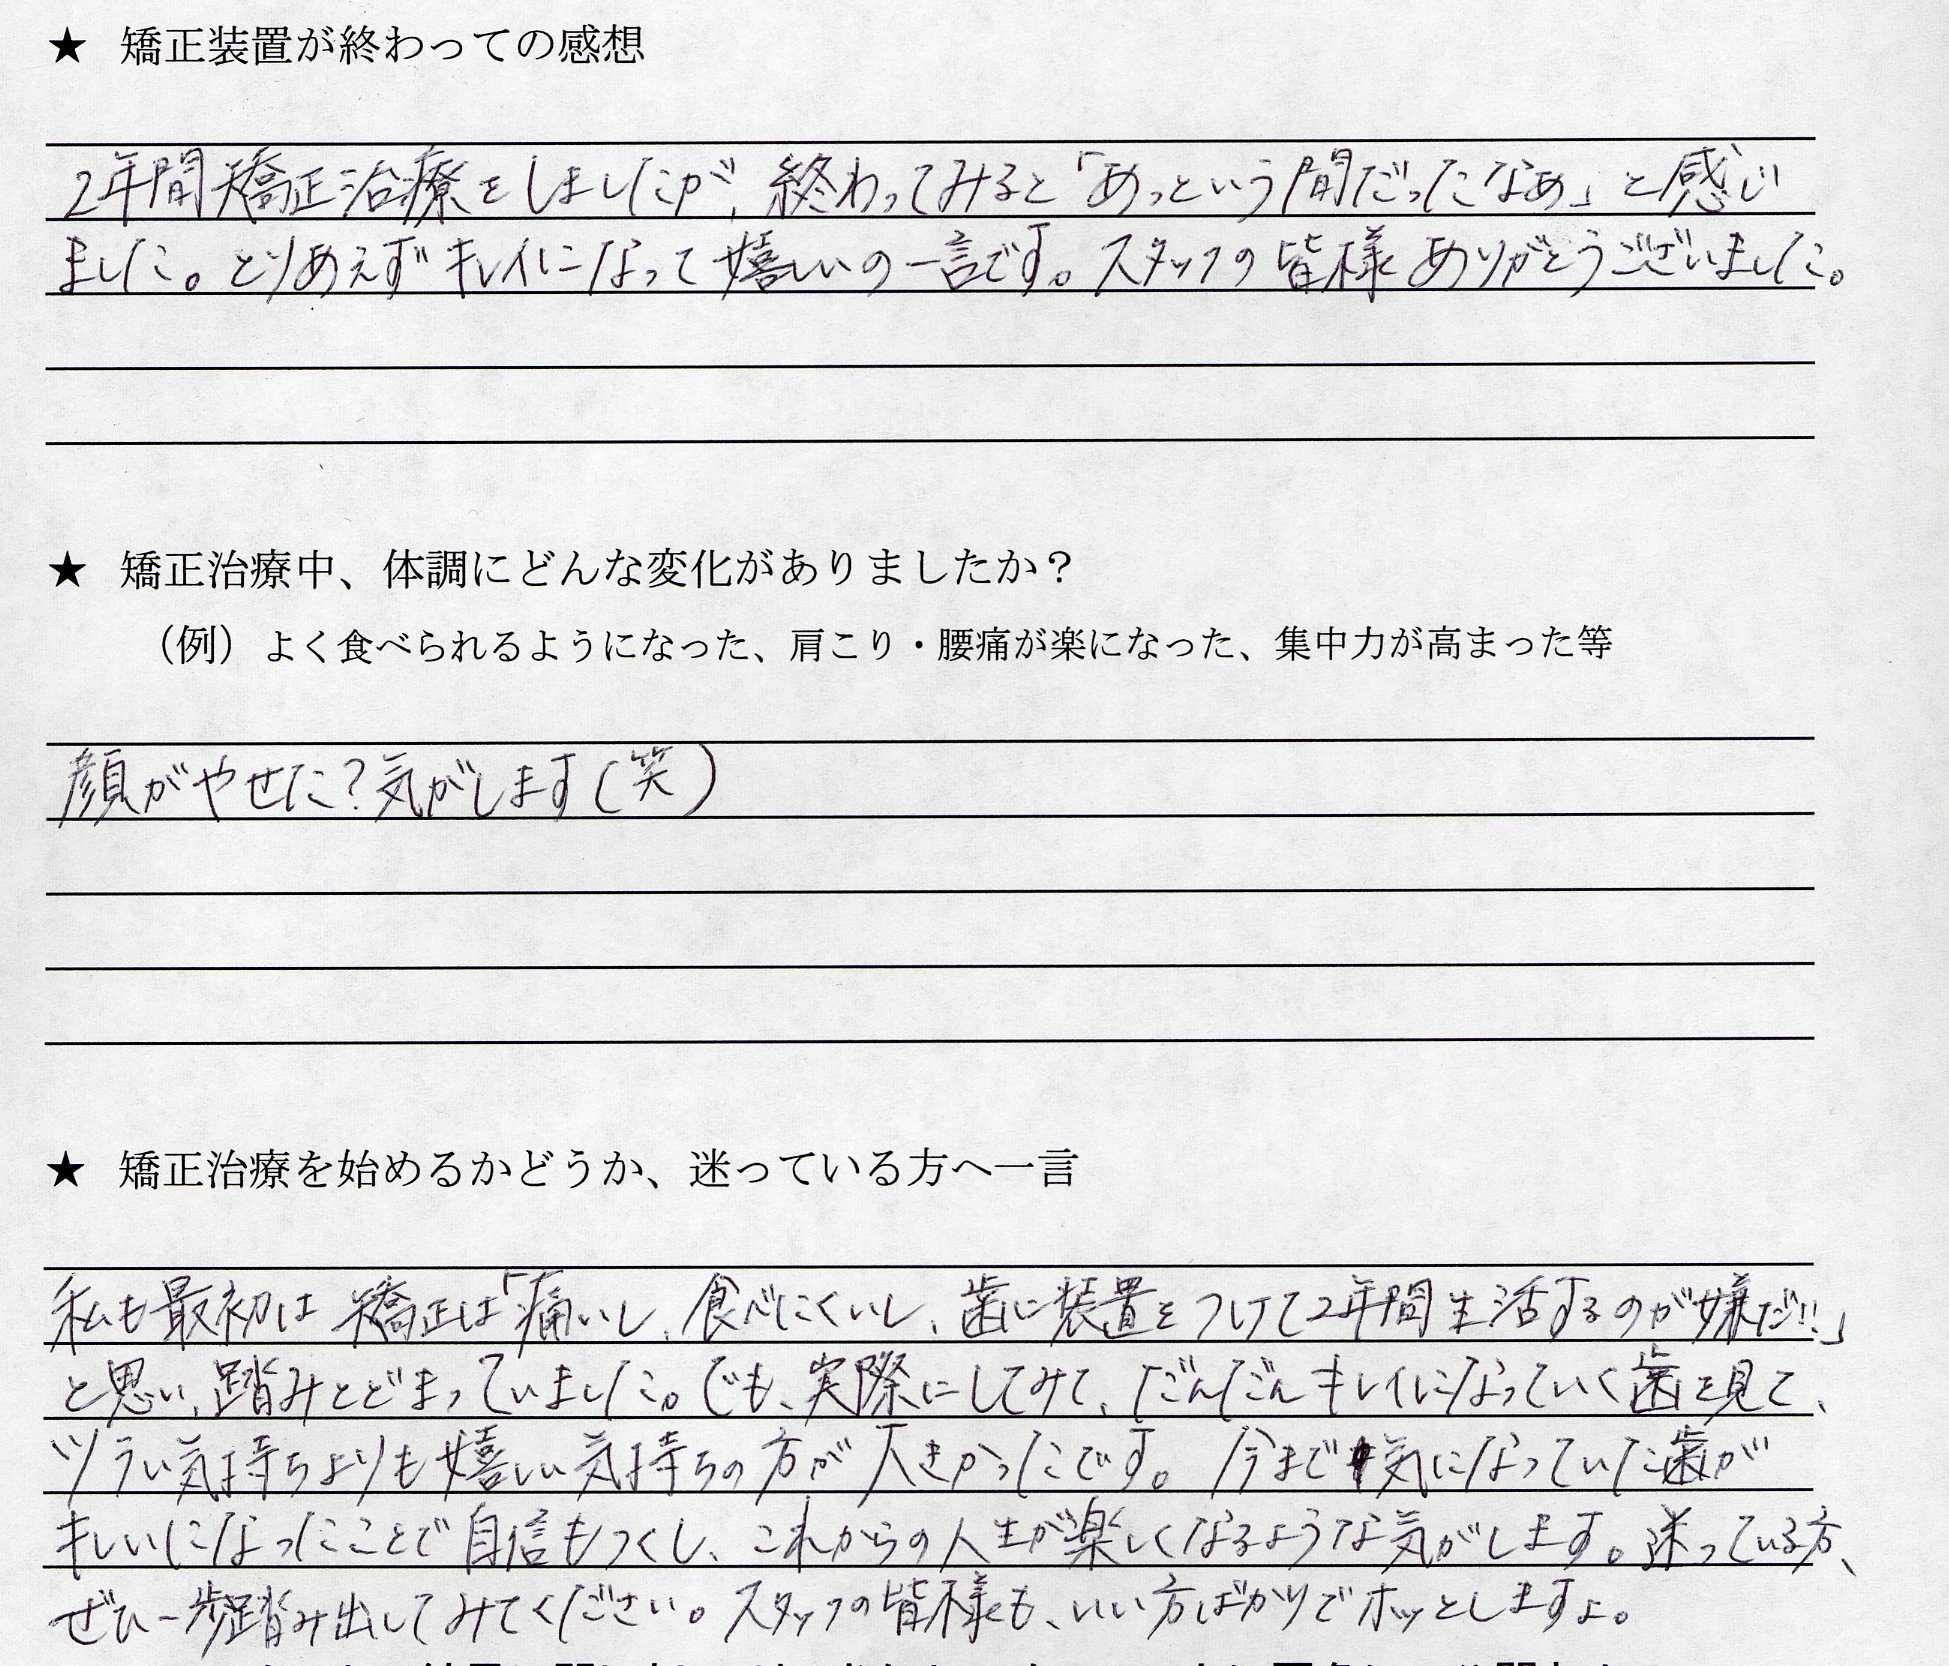 ★ 矯正装置が終わっての感想
2年間矯正治療をしましたが、終わってみると「あっという間だったなぁ」と感じ
ました。とりあえずキレイになって嬉しいの一言です。スタッフの皆様ありがとうございました。
★ 矯正治療中、体調にどんな変化がありましたか？
（例）よく食べられるようになった、肩こり・腰痛が楽になった、集中力が高まった等
顔がやせた？気がします(笑)
★ 矯正治療を始めるかどうか、迷っている方へ一言
私も最初は矯正は「痛いし、食べにくいし、歯に装置をつけて2年間生活するのが嫌だ!!」
と思い、踏みとどまっていました。でも、実際にしてみて、だんだんキレイになっていく歯を見て、
ツラい気持ちよりも嬉しい気持ちの方が大きかったです。今まで気になっていた歯が
キレイになったことで自信もつくし、これからの人生が楽しくなるような気がします。迷っている方、
ぜひ一歩踏み出してみてください。スタッフの皆様も、いい方ばかりでホッとしますよ。